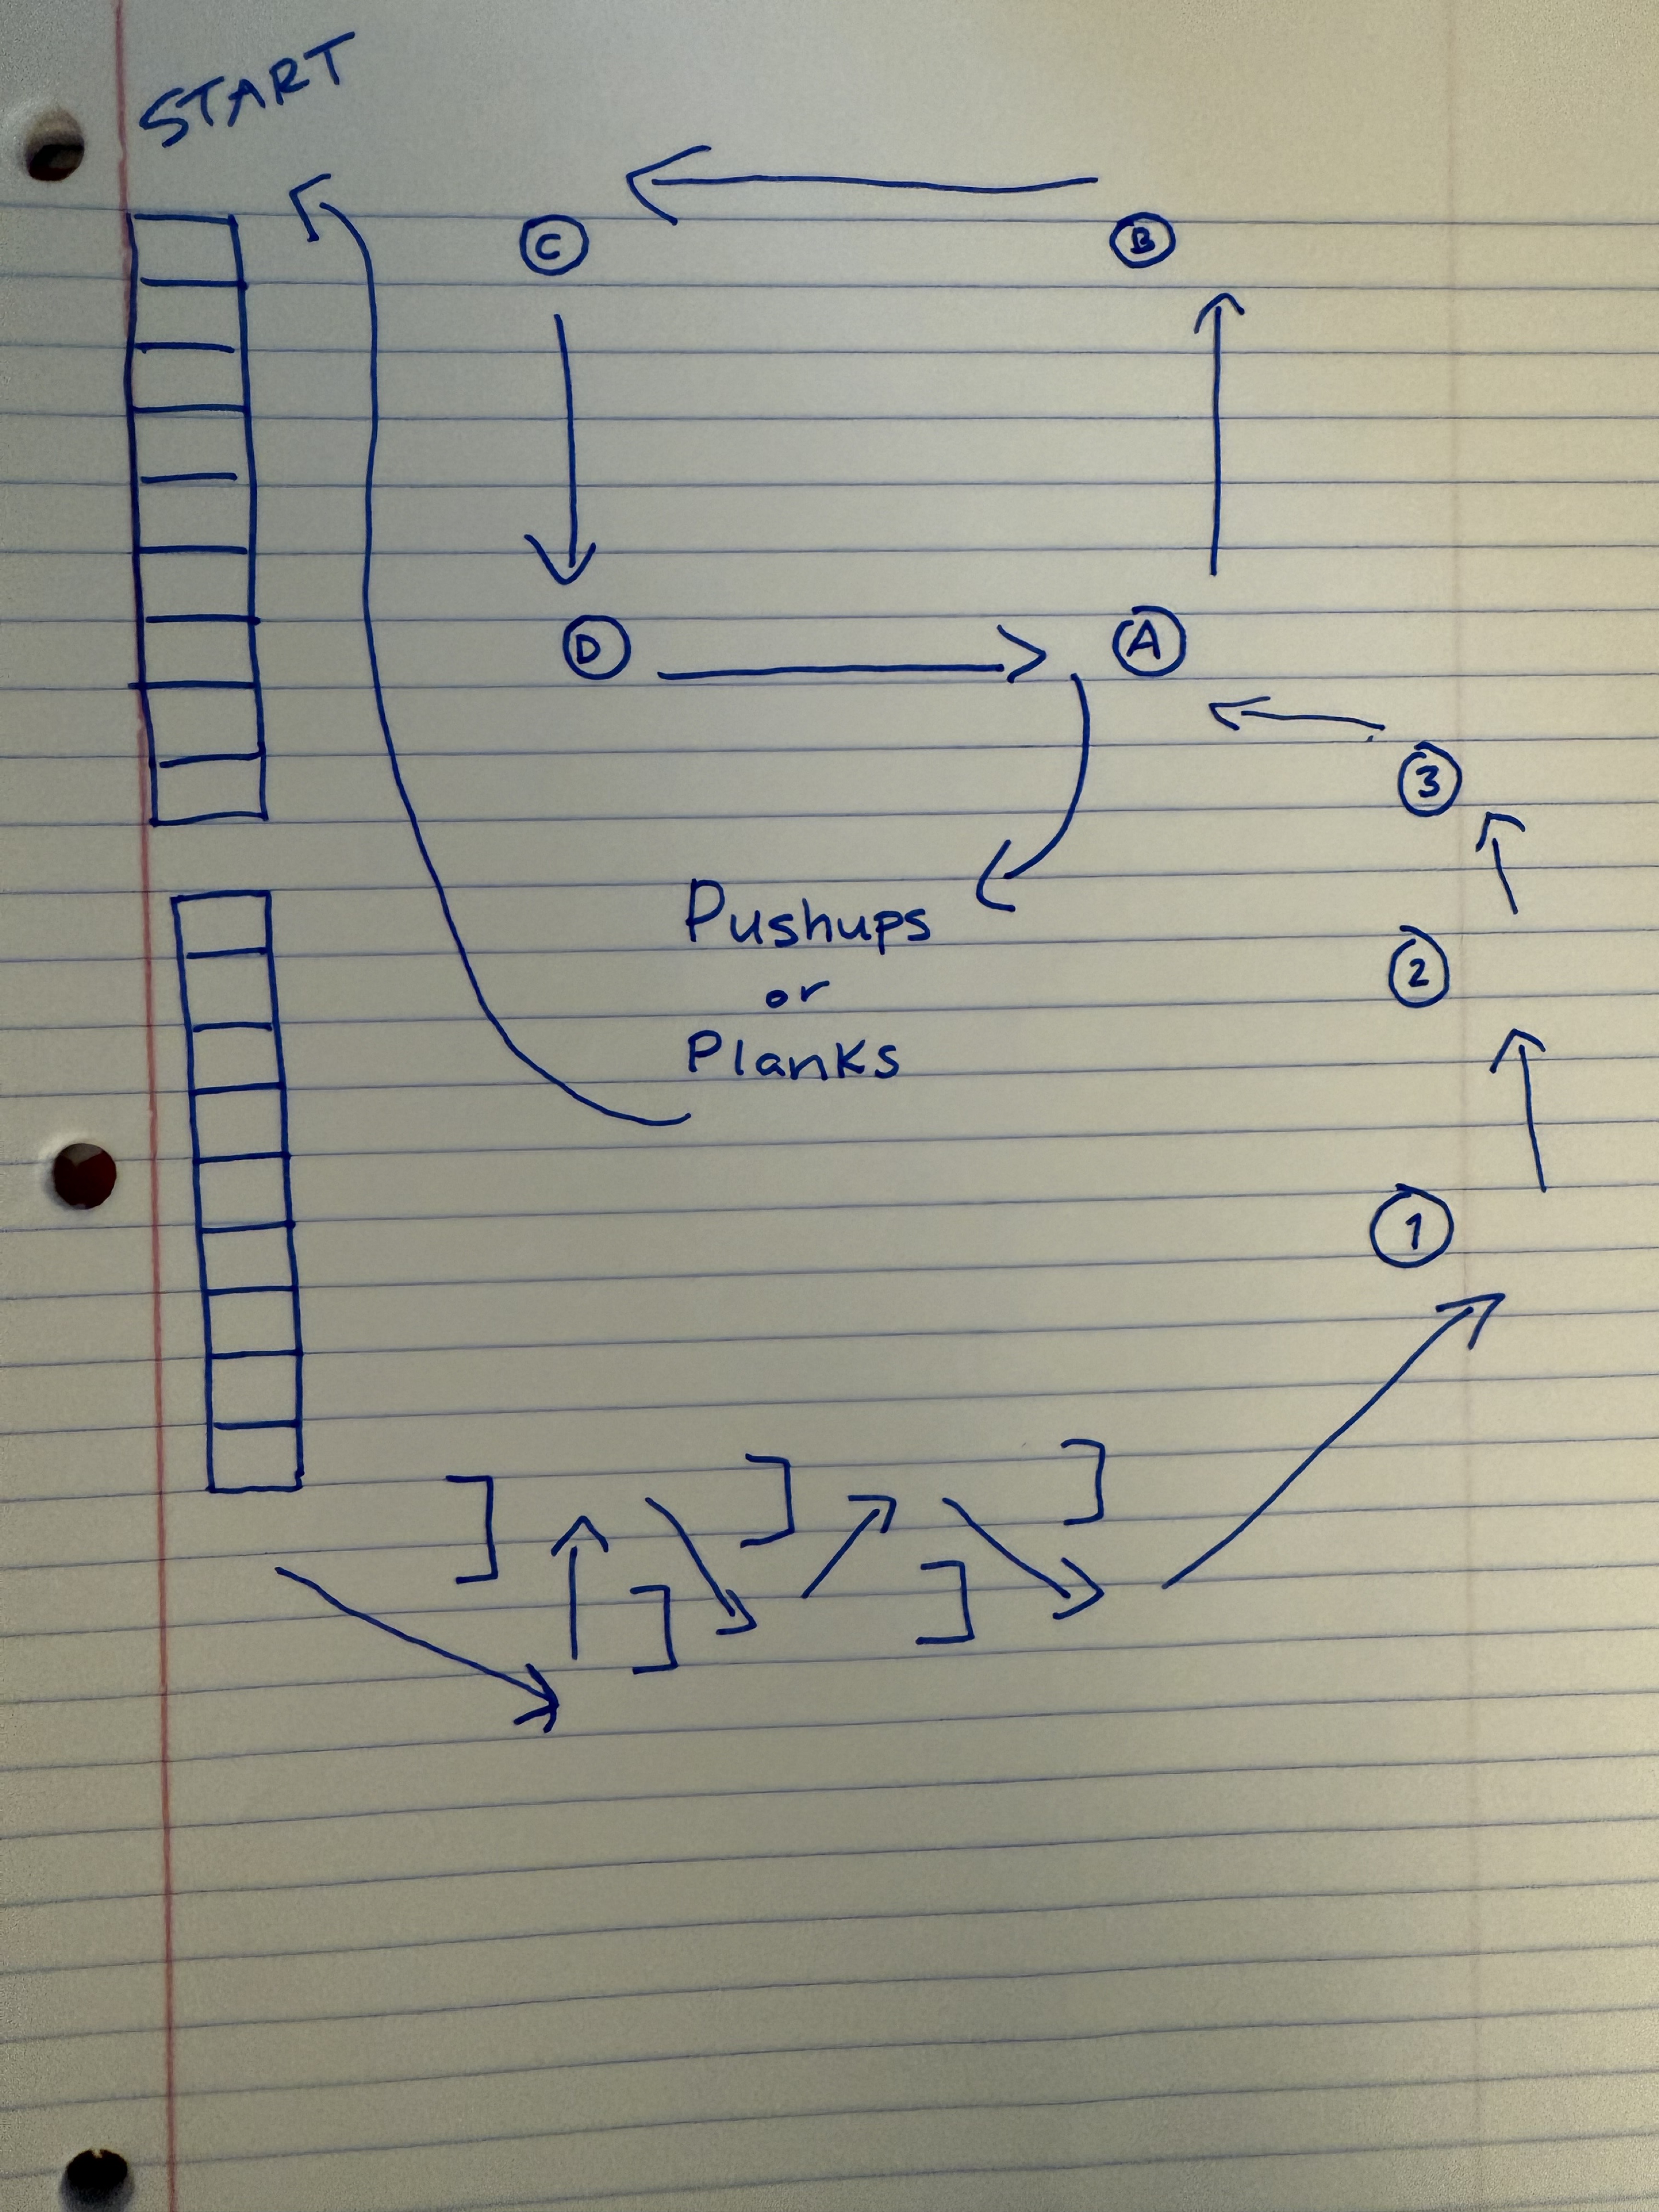 START
C
B
D
A
3
Pushups
2
or
Planks
1